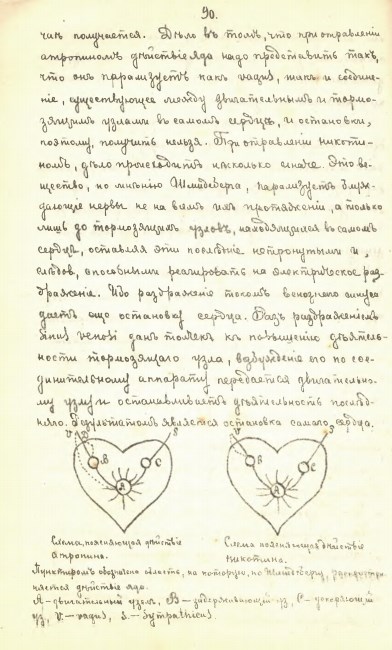 90.
чик получается. Дѣло въ томъ, что при отравленіи
атропиномъ дѣйствіе яда надо представить такъ,
что онъ парализуетъ какъ vagus, такъ и соедине-
ніе, существующее между двигательнымъ и тормо-
зящимъ узлами въ самомъ сердцѣ, и остановки,
поэтому, получить нельзя. При отравленіи никоти-
номъ, дѣло происходитъ нѣсколько иначе. Это ве-
щество, по мнѣнію Шмидеберга, парализуетъ блуж-
дающіе нервы не на всемъ ихъ протяженіи, а только
лишь до тормозящихъ узловъ, находящихся въ самомъ
сердцѣ, оставляя эти послѣдніе нетронутыми и,
слѣдов, способными реагировать на электрическое раз-
драженіе. Ибо раздраженіе токомъ венознаго синуса
даетъ ещо остановку сердца. Разъ раздраженіемъ
sinus venosi данъ толчекъ къ повышенію дѣятель-
ности тормозящаго узла, возбужденіе его по сое-
динительному аппарату передается двигательно-
му узлу и останавливаетъ дѣятельность послѣд-
няго. Результатомъ является остановка самаго сердца.
V S V S
B C A B C A
Схема, поясняющая дѣйствіе Схема поясняющая дѣйствіе
атропина. никотина.
Пунктиромъ обозначена область, на которую, по Шмидебергу, распростра-
няется дѣйствіе яда.
A – двигательный узелъ, B – задерживающій уз, C – ускоряющій
уз, V – vagus, S – Sympathicus.